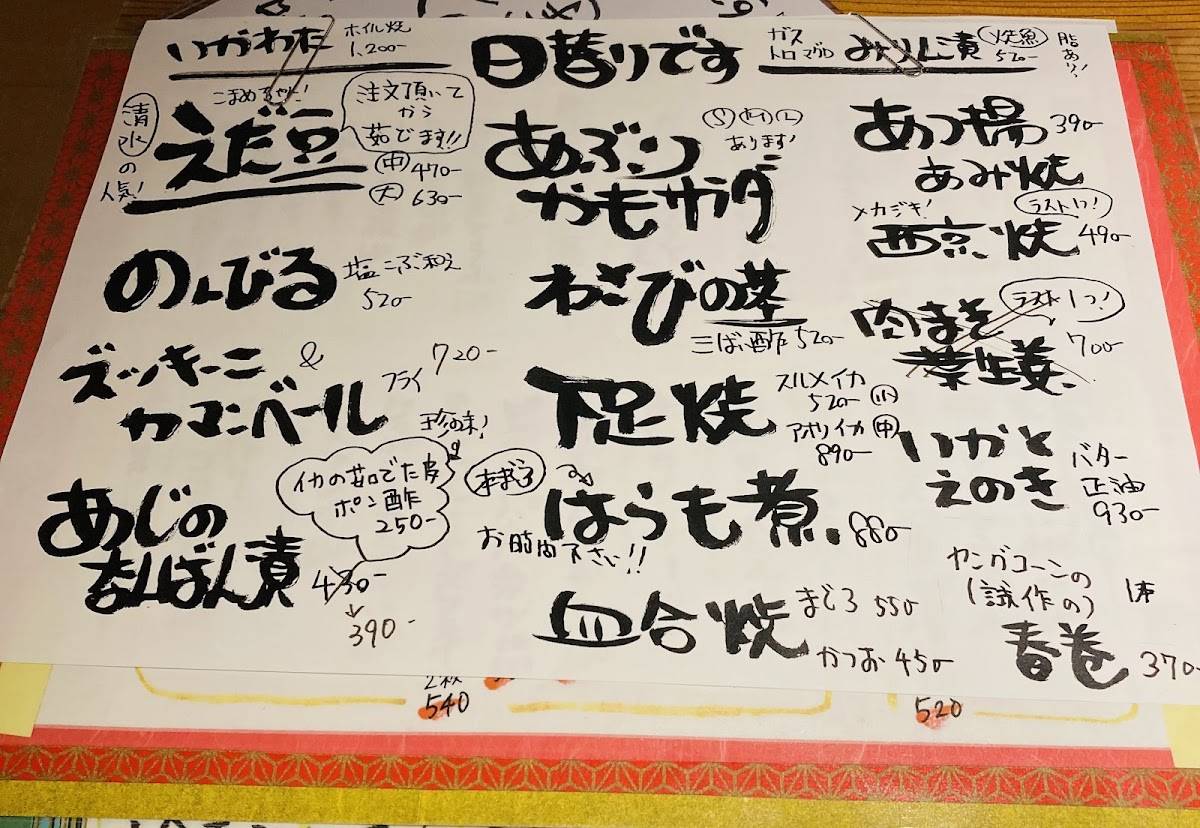 いかわた
ホイル焼
1,200-
日替りです
ガス
トロマグロ
みりん漬
焼魚
520-
脂あり!
こまめちゃん!
清水の人気!
えだ豆
注文頂いて
から
茹でます!!
中 470-
大 630-
のんびる
塩こぶ和え
520-
ズッキーニ &
カマンベール
フライ
720-
珍味!
イカの茹でた皮
ポン酢
250-
あじの
なんばん漬
430-
390-
あぶり
かもサラダ
S M L
あります!
わさびの茎
三ばい酢 520-
下足焼
スルメイカ
520- 小
アオリイカ 中
890-
本まぐろ
はらも煮
880-
お時間下さい!!
血合焼
まぐろ 550
かつお 450-
あつ揚
390-
あみ焼
メカジキ!
ラスト1つ!
西京焼
490-
肉まそ
葉生姜
ラスト1つ!
700-
いかと
えのき
バター
正油
930-
ヤングコーンの
(試作の)
1本
春巻
370-
540
520